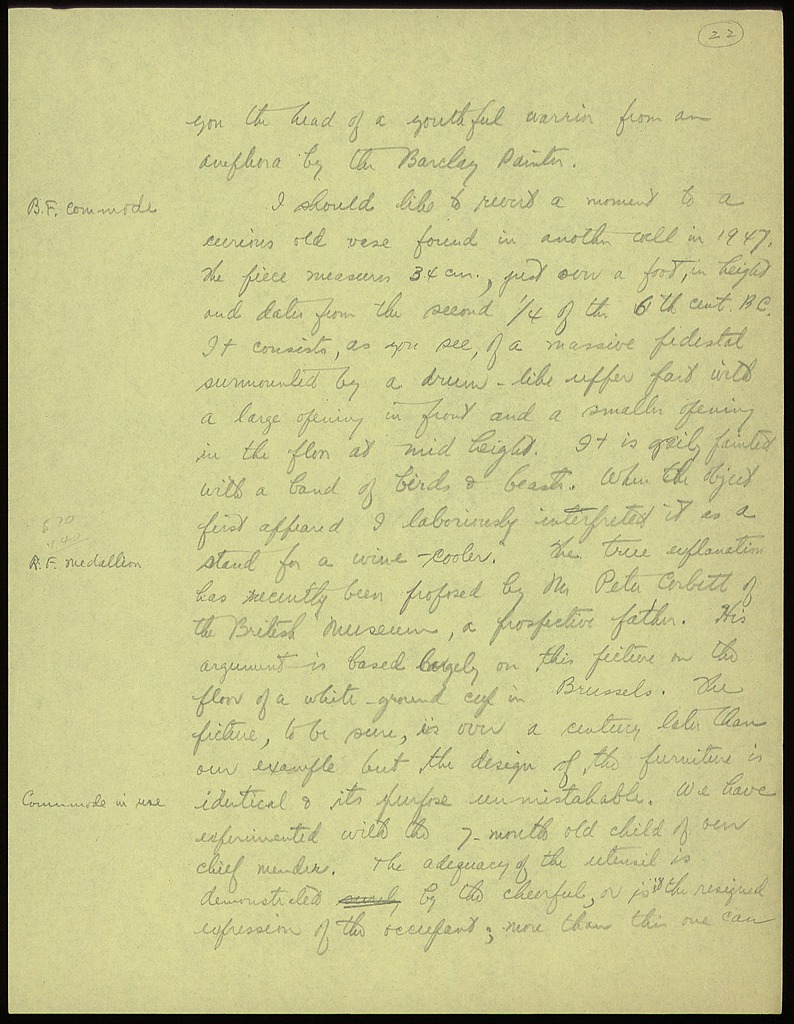 22
you the head of a youthful warrior from an
amphora by the Barclay Painter.
B.F. commode
I should like to revert a moment to a
curious old vase found in another well in 1947.
The piece measures 34 cm., just over a foot, in height
and dates from the second 1/4 of the 6th cent. B.C.
It consists, as you see, of a massive pedestal
surmounted by a drum-like upper part with
a large opening in front and a smaller opening
in the floor at mid height. It is gaily painted
with a band of birds & beasts. When the object
first appeared I laboriously interpreted it as a
570
R.F. medallion
stand for a wine-cooler. The true explanation
has recently been proposed by Mr Peter Corbett of
the British Museum, a prospective father. His
argument is based largely on this picture on the
floor of a white-ground cup in Brussels. The
picture, to be sure, is over a century later than
our example but the design of the furniture is
Commode in use
identical & its purpose unmistakable. We have
experimented with the 7-month old child of our
chief mender. The adequacy of the utensil is
demonstrated surely by the cheerful, or is it the resigned
expression of the occupant; more than this one can